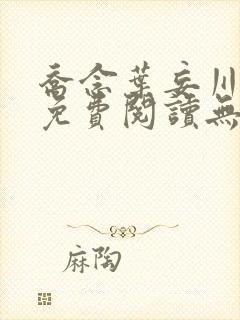 喬念葉妄川
免費閱讀無
麻陶